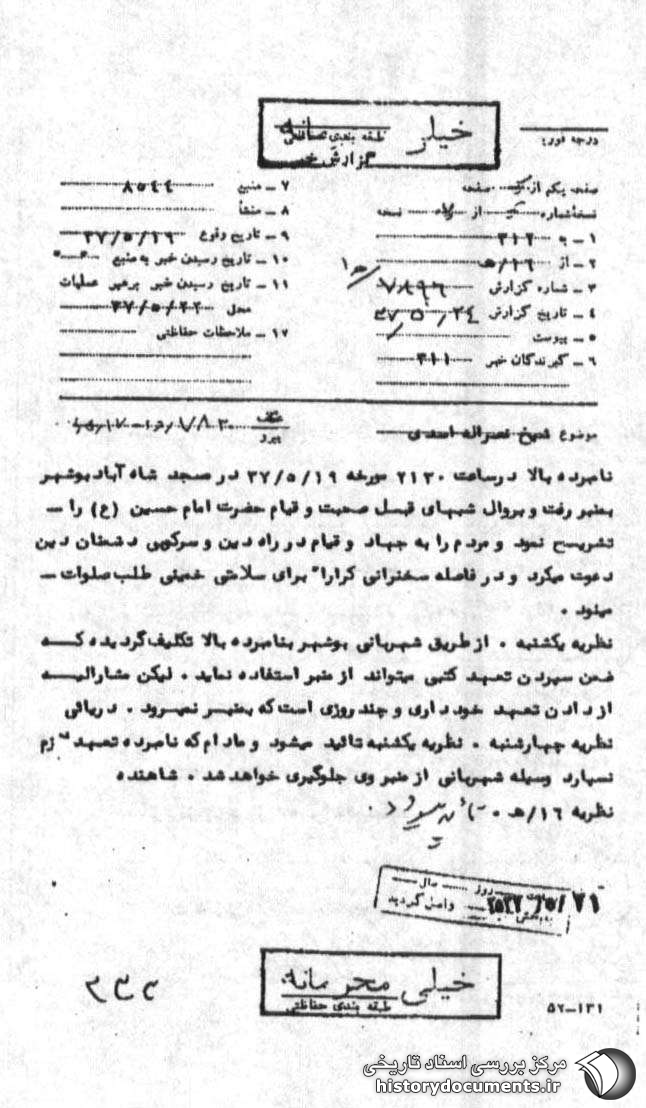 خیلی محرمانه
طبقه بندی حفاظتی
گزارش خبر
درجه فوریت
صفحه یکم از یک صفحه
نسخه شماره از نسخه
۱ – به ۳۱۲
۲ – از ۱۶/هـ
۳ – شماره گزارش ۷۸۹۶/هـ۱
۴ – تاریخ گزارش ۳۷/۵/۲۴
۵ – پیوست
۶ – گیرندگان خبر ۳۱۱
۷ – منبع ۸۵۴۴
۸ – منشأ
۹ – تاریخ وقوع ۳۷/۵/۱۹
۱۰ – تاریخ رسیدن خبر به منبع
۱۱ – تاریخ رسیدن خبر برهبر عملیات
محل ۳۷/۵/۲۲
۱۲ – ملاحظات حفاظتی
موضوع شیخ نصراله اسدی
عطف
پیرو
نامبرده بالا درساعت ۲۱۳۰ مورخه ۳۷/۵/۱۹ در مسجد شاه آباد بوشهر
بمنبر رفت و بروال شبهای قبل صحبت و قیام حضرت امام حسین (ع) را –
تشریح نمود و مردم را به جهاد و قیام در راه دین و سرکوبی دشمنان دین
دعوت میکرد و در فاصله سخنرانی کرارا" برای سلامتی خمینی طلب صلوات –
مینود .
نظریه یکشنبه . از طریق شهربانی بوشهر بنامبرده بالا تکلیف گردیده که
ضمن سپردن تعهد کتبی میتواند از منبر استفاده نماید . لیکن مشارالیه
از دادن تعهد خودداری و چند روزی است که بمنبر نمیرود . دریائی
نظریه چهارشنبه . نظریه یکشنبه تائید میشود و مادام که نامبرده تعهد لازم
نسپارد وسیله شهربانی از منبر وی جلوگیری خواهد شد . شاهنده
نظریه ۱۶/هـ . تائید میشود .
روز ماه سال
۲۵۳۷/۵/۷۱
به بخش واصل گردید
خیلی محرمانه
طبقه بندی حفاظتی
۳۳۳
۵۲–۱۳۱
مرکز بررسی اسناد تاریخی
historydocuments.ir